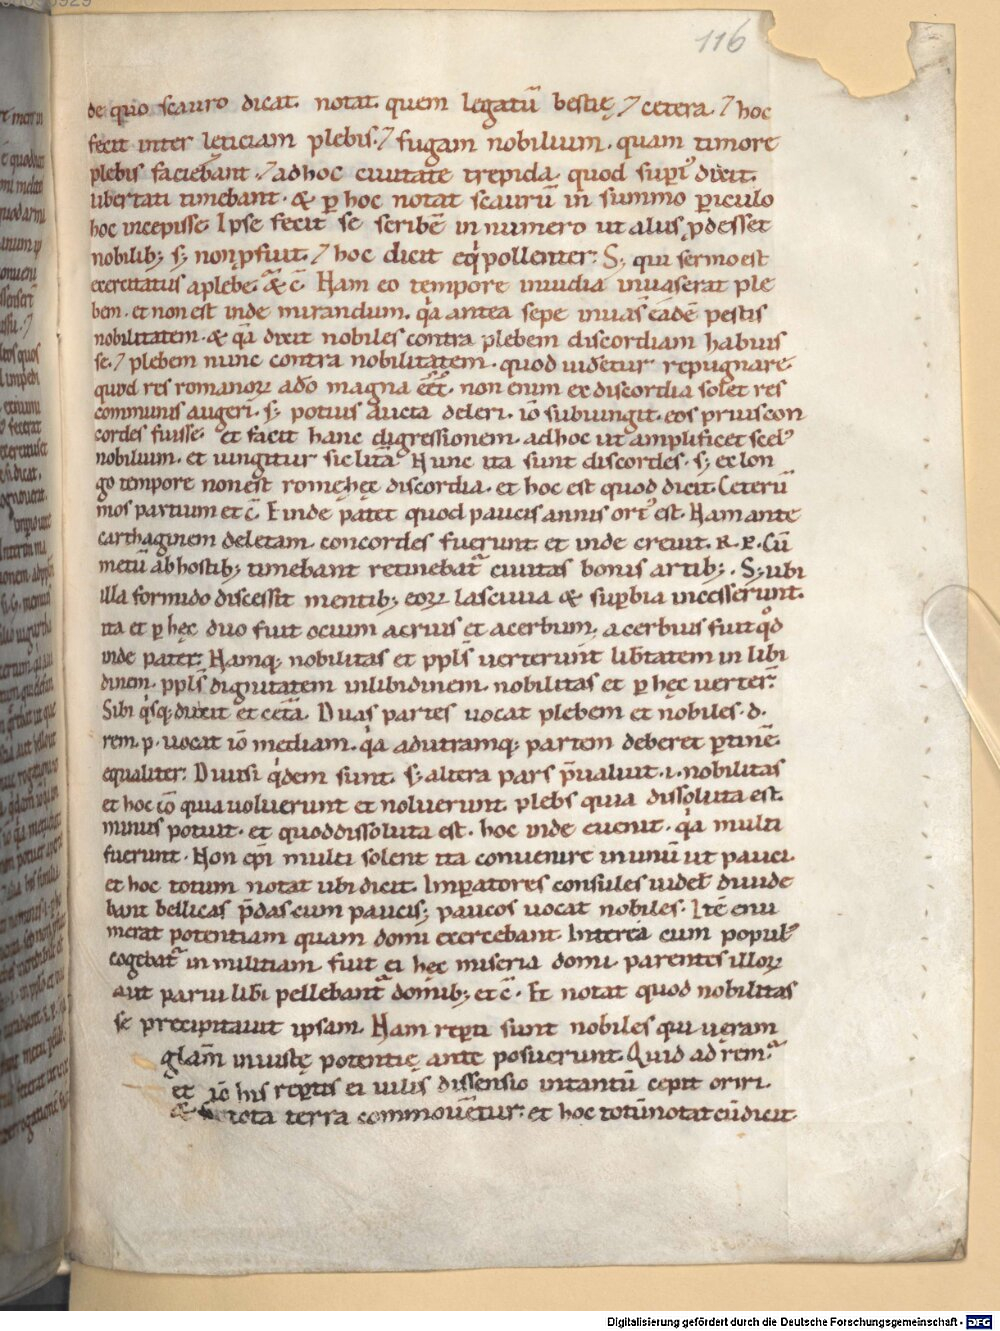 116
de quo scauro dicat. notat. quem legatū bestię ⁊ cetera. ⁊ hoc
fecit inter leticiam plebis. ⁊ fugam nobilium. quam timore
plebis faciebant. ⁊ adhoc ciuitate trepida. quod supͥ dixit.
libertati timebant. & ꝑ hoc notat scaurū in summo ꝑiculo
hoc incepisse. Ipse fecit se scribē in numero ut aliis ꝓdesset
nobilibꝫ sꝫ non ꝓfuit. ⁊ hoc dicit eq̇pollenter. Sꝫ qui sermo est
exercitatus a plebe. &c̄. Nam eo tempore inuidia inuaserat ple
bem. et non est inde mirandum. q̇a antea sepe inuasͭ eadē pestis
nobilitatem. & q̇a dixit nobiles contra plebem discordiam habuis
se. ⁊ plebem nunc contra nobilitatem. quod uidetur repugnare
quod res romanoꝝ adō magna eēt. non enim ex discordia solet res
communis augeri. sꝫ potius aucta deleri. iō subiungit. eos prius con
cordes fuisse. et facit hanc digressionem. adhoc ut amplificet scelꝰ
nobilium. et iungitur sic litā. Nunc ita sunt discordes. sꝫ ex lon
go tempore non est romę hęc discordia. et hoc est quod dicit. Ceterū
mos partium et c̄. Et inde patet quod paucis annis ortꝰ est. Nam ante
carthaginem deletam. concordes fuerunt et inde creuit. R. P. Cū
metū ab hostibꝫ timebant retinebatͬ ciuitas bonis artibꝫ. Sꝫ ubi
illa formido discessit mentibꝫ eoꝝ lasciuia & suꝑbia incesserunt.
ita et ꝑ hęc duo fuit ocium acrius et acerbium. acerbius fuit qͦd
inde patet. Namqꝫ nobilitas et pplͣs uerterunt libtatem in libi
dinem. pplͣs dignitatem in libidinem. nobilitas et ꝑ hęc uerterͭ.
Sibi q̇sqꝫ dixit et cetā. Duas partes uocat plebem et nobiles. d.
rem. p. uocat iō mediam. q̇a ad utramqꝫ partem deberet ꝑtinē
equaliter. Diuisi q̇dem sunt. sꝫ altera pars p̄ualuit .i. nobilitas
et hoc iō quia uoluerunt et noluerunt. plebs quia dissoluta est.
minus potuit. et quod dissoluta est. hoc inde euenit. q̇a multi
fuerunt. Non eni multi solent ita conuenire in unū ut pauci.
et hoc totum notat ubi dicit. Imꝑatores consules uidelͭ diuide
bant bellicas p̄das cum paucisꝫ paucos uocat nobiles. Itē enu
merat potentiam quam domi exercebant. Interea cum populꝰ
cogebatͬ in militiam. fuit ei hęc miseria domi. parentes illoꝝ
aut parui libi pellebantͬ domibꝫ et c̄. Et notat quod nobilitas
se precipitauit ipsam. Nam reꝑti sunt nobiles qui ueram
glam iniustę potentię ante posuerunt. Quid ad remͣ.
et iō his reꝑtis ei uilis dissensio in tantū cepit oriri.
& tota terra commouetur. et hoc totū notat cū dicit
Digitalisierung gefördert durch die Deutsche Forschungsgemeinschaft - DFG